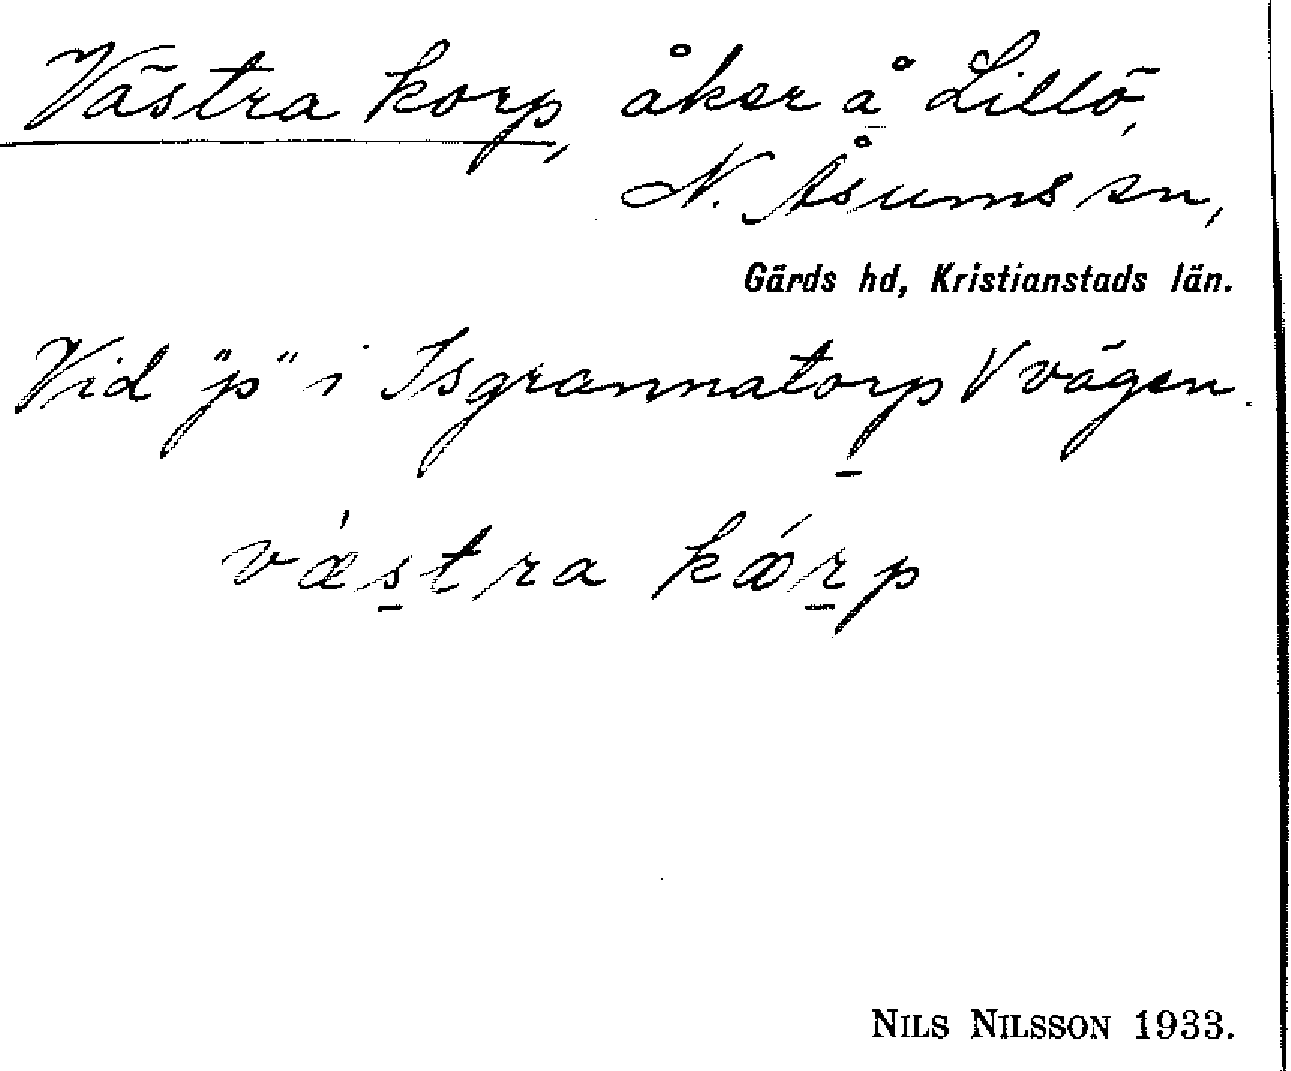 Västra korp, åker å Lillö,
N. Åsums sn,
Gärds hd, Kristianstads län.
Vid "p" i Isgrannatorp V vägen.
væ̀stra kǽrp
NILS NILSSON 1933.